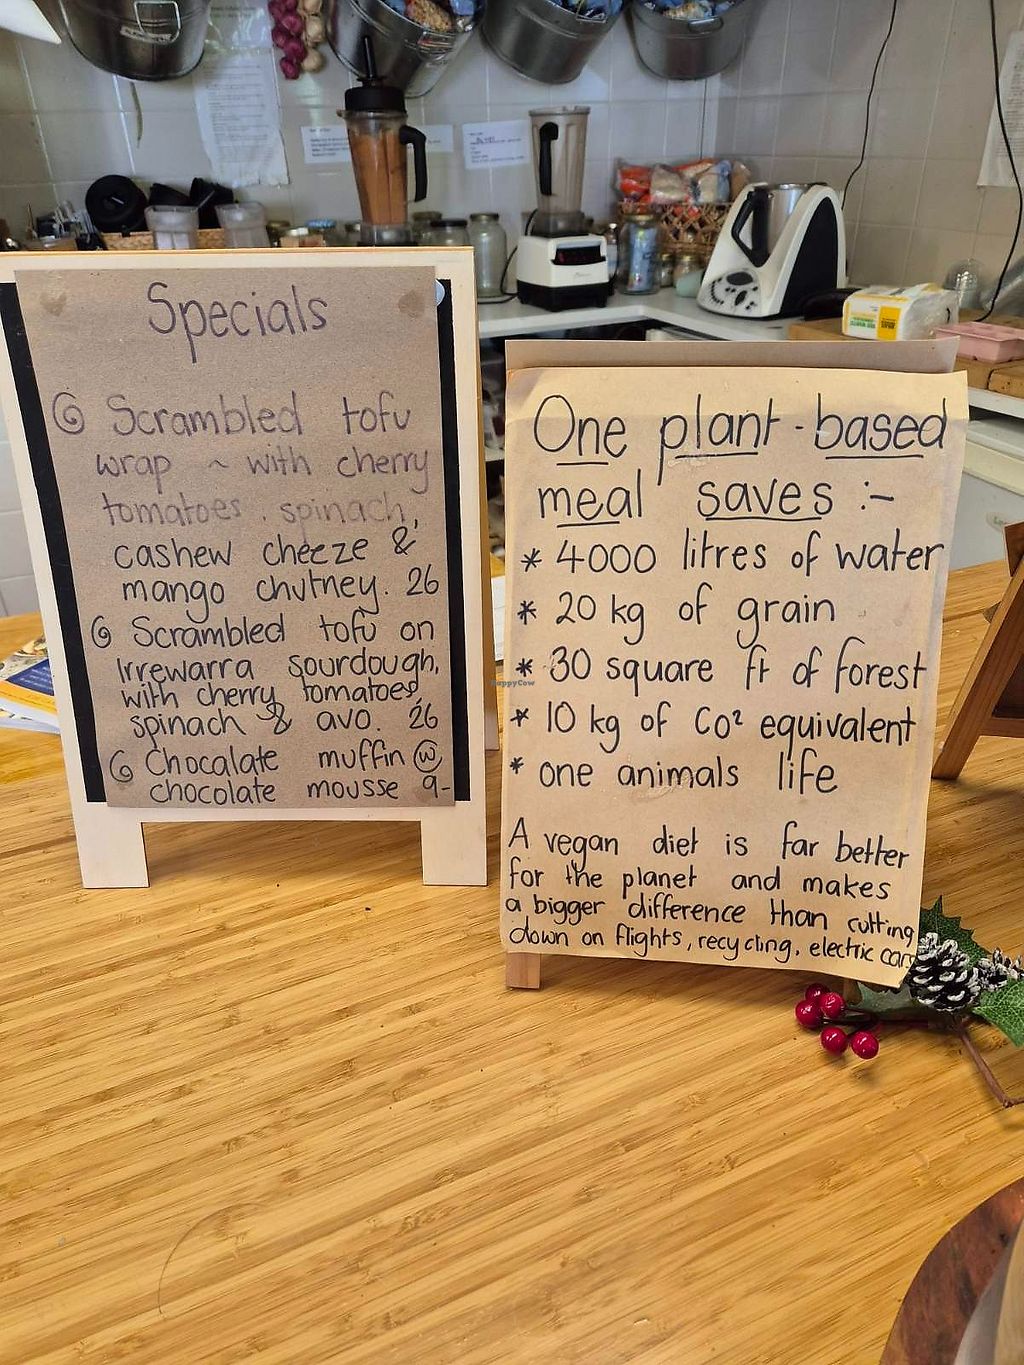 Specials
Scrambled tofu
wrap ~ with cherry
tomatoes, spinach,
cashew cheeze &
mango chutney. 26
Scrambled tofu on
Irrewarra sourdough,
with cherry tomatoes,
spinach & avo. 26
Chocalate muffin @
chocolate mousse 9-
One plant-based
meal saves :-
* 4000 litres of water
* 20 kg of grain
* 30 square ft of forest
* 10 kg of Co² equivalent
* one animals life
A vegan diet is far better
for the planet and makes
a bigger difference than cutting
down on flights, recycling, electric cars
HappyCow